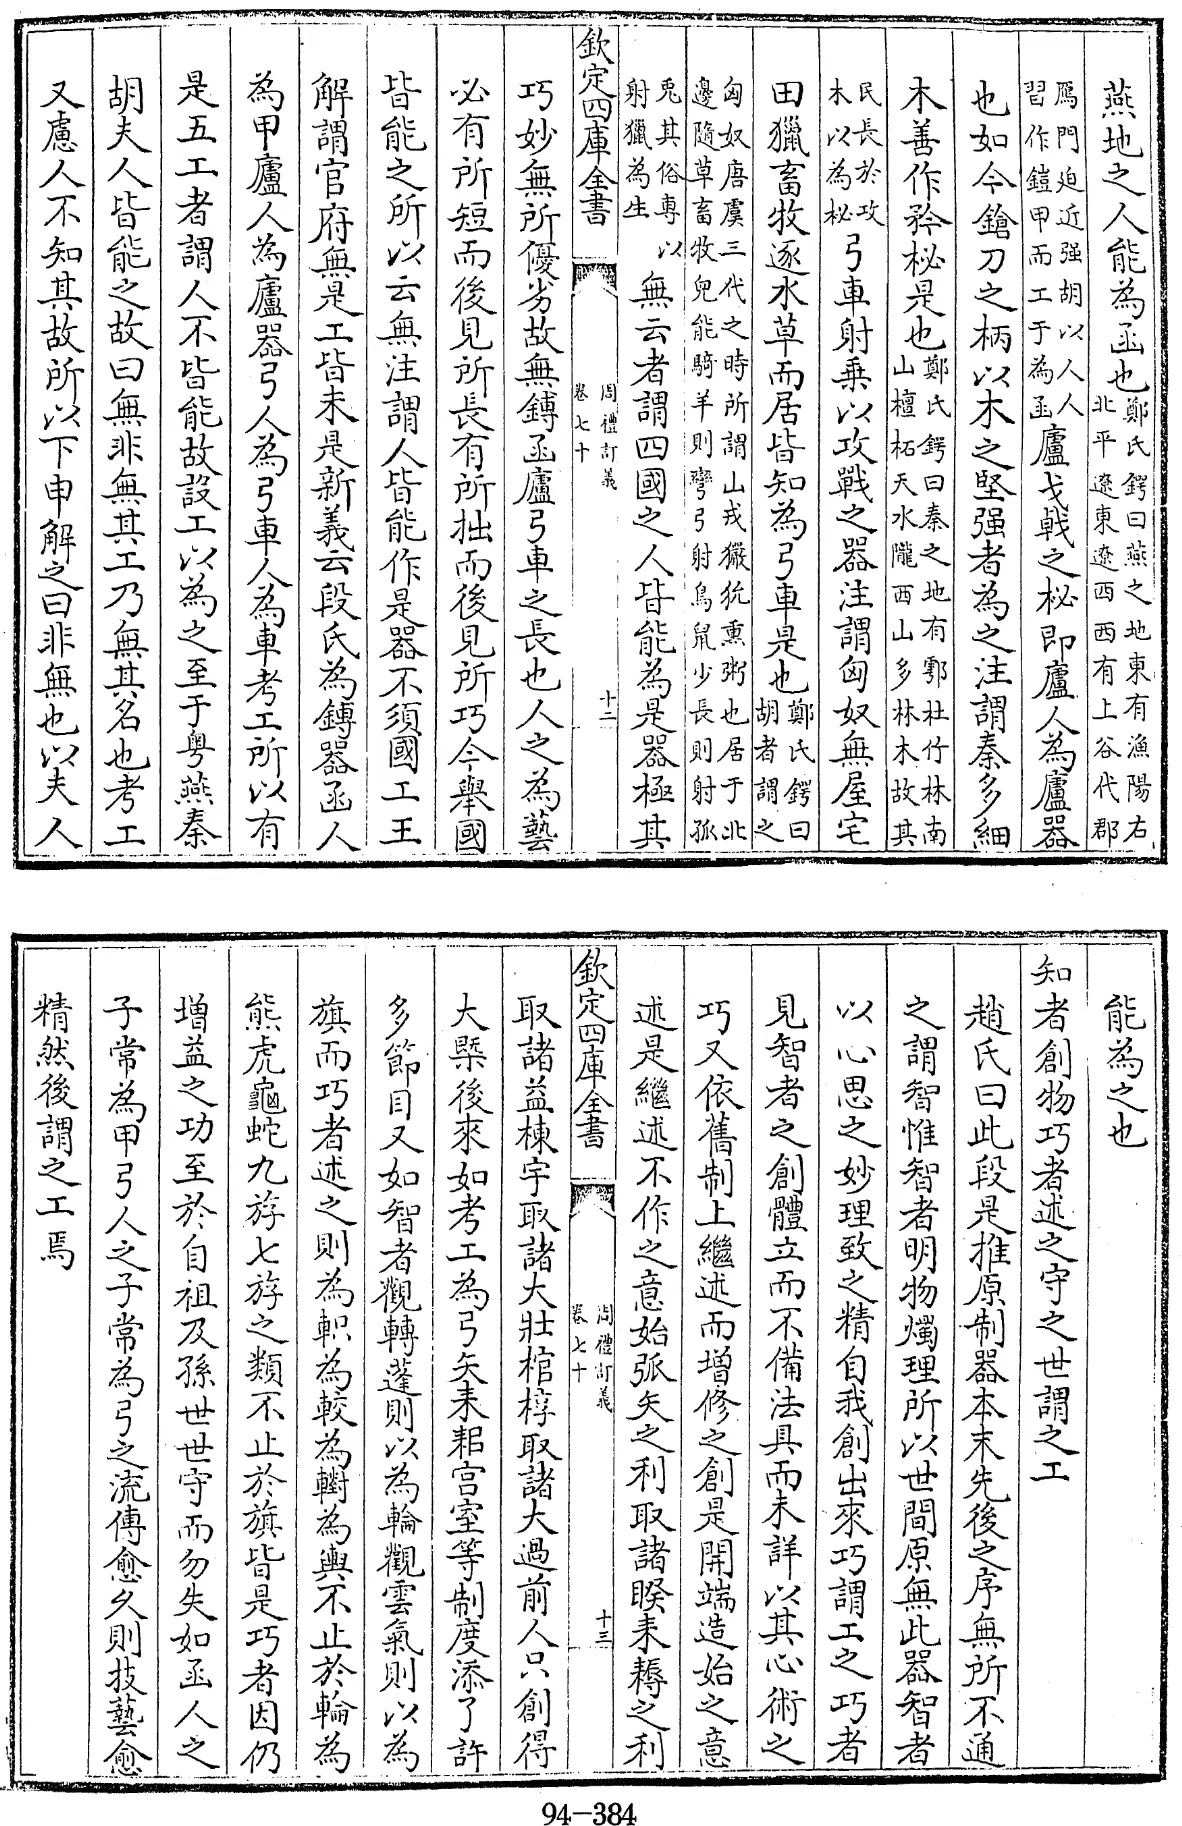 燕地之人能為函也鄭氏鍔曰燕之地東有漁陽右北平遼東遼西西有上谷代郡
鴈門廹近强胡以人人習作鎧甲而工于為函廬戈㦸之柲即廬人為廬器
也如今鎗刀之柄以木之堅强者為之注謂秦多細
木善作矜柲是也鄭氏鍔曰秦之地有鄠杜竹林南山檀柘天水隴西山多林木故其
民長於攻木以為柲弓車射乗以攻戰之器注謂匈奴無屋宅
田獵畜牧逐水草而居皆知為弓車是也鄭氏鍔曰胡者謂之
匈奴唐虞三代之時所謂山戎玁狁熏粥也居于北邊隨草畜牧兒能騎羊則彎弓射鳥鼠少長則射狐
兎其俗專以射獵為生無云者謂四國之人皆能為是器極其
欽定四庫全書
周禮訂義
卷七十
十二
巧妙無所優劣故無鎛函廬弓車之長也人之為藝
必有所短而後見所長有所拙而後見所巧今舉國
皆能之所以云無注謂人皆能作是器不須國工王
解謂官府無是工皆未是新義云段氏為鎛器函人
為甲廬人為廬器弓人為弓車人為車考工所以有
是五工者謂人不皆能故設工以為之至于粵燕秦
胡夫人皆能之故曰無非無其工乃無其名也考工
又慮人不知其故所以下申解之曰非無也以夫人
能為之也
知者創物巧者述之守之世謂之工
趙氏曰此段是推原制器本末先後之序無所不通
之謂智惟智者明物燭理所以世間原無此器智者
以心思之妙理致之精自我創出來巧謂工之巧者
見智者之創體立而不備法具而未詳以其心術之
巧又依舊制上繼述而增修之創是開端造始之意
述是繼述不作之意始弧矢之利取諸睽耒耨之利
欽定四庫全書
周禮訂義
卷七十
十三
取諸益棟宇取諸大壯棺椁取諸大過前人只創得
大槩後來如考工為弓矢耒耜宮室等制度添了許
多節目又如智者觀轉蓬則以為輪觀雲氣則以為
旗而巧者述之則為軹為較為轛為輿不止於輪為
熊虎龜蛇九斿七斿之類不止於旗皆是巧者因仍
增益之功至於自祖及孫世世守而勿失如函人之
子常為甲弓人之子常為弓之流傳愈久則技藝愈
精然後謂之工焉
94-384